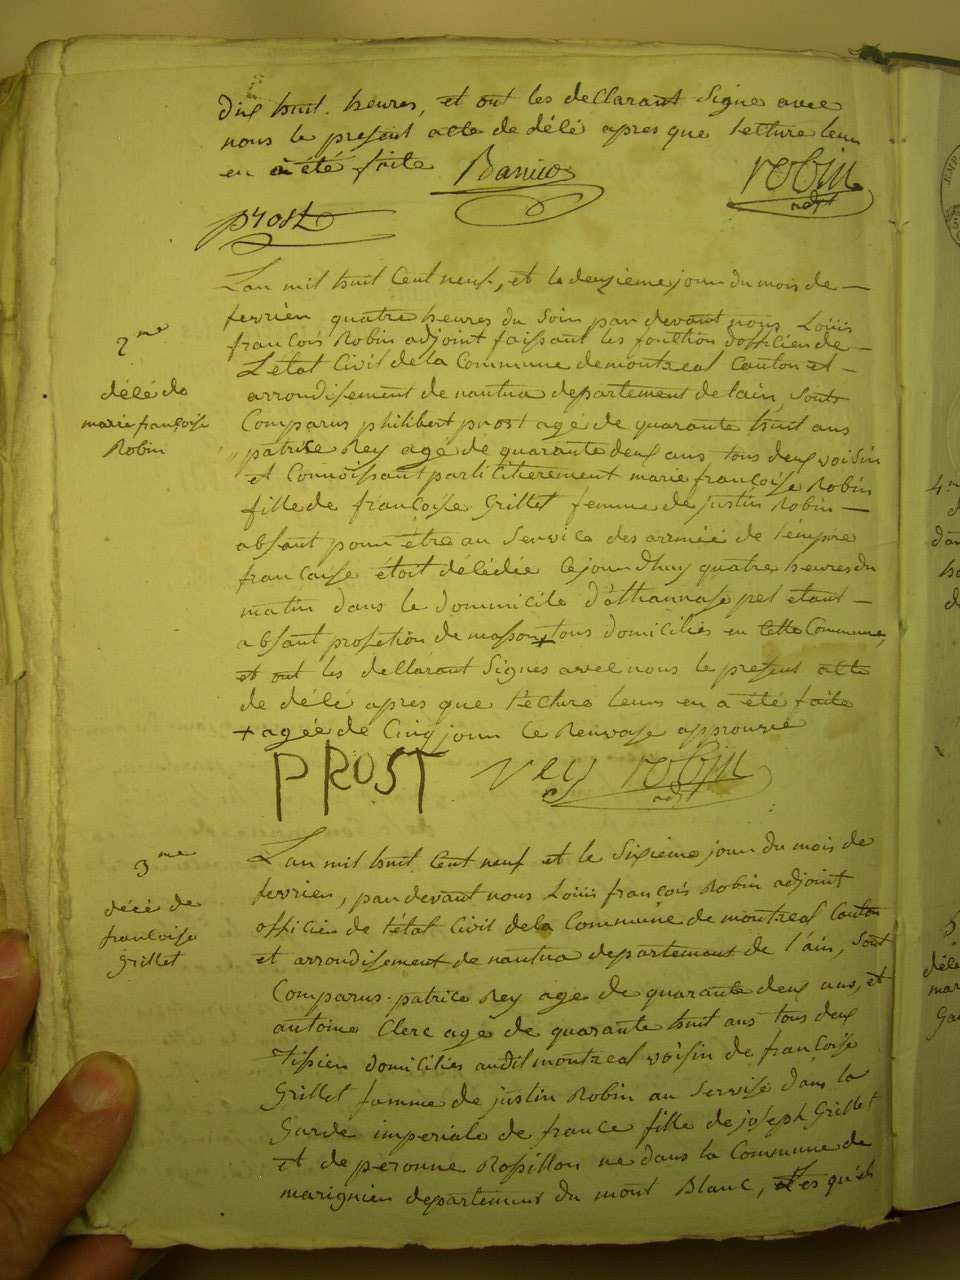 dix huit. heures, et ont les declarant signe avec
nous le present acte de décé apres que lecture leur
en a été faite Barrico robin
adjt
prost
L'an mil huit cent neuf, et le deuzieme jour du mois de
fevrier quatre heures du soir par devant nous Louis
2me
francois Robin adjoint faissant les fonction d'officier de
L'état Civil de la Commune de montreal Canton et
décé de
arrondisement de nantua departement de lain, sont
marie françoise
Comparus philibert prost agé de quarante huit ans
Robin
patrice Rey agé de quarante deux ans tous deux voisin
et Connoissant particulierement marie francoise Robin
fille de francoise Grillet femme de justin Robin
absant pour être au service des armée de l'empire
francaise etoit décédée cejourdhuy quatre heures du
matin dans le dommicile d'athannase pet etant
absant profetion de masson + tous domiciliés en cette Commune,
et ont les declarant signes avec nous le present acte
de décé apres que l'ecture leurs en a été faite
+ agée de Cinq jour le Renvoye approuvée
PROST rey robin
adjt
L'an mil huit cent neuf et le sixieme jour du mois de
3me
fevrier, par devant nous Louis francois Robin adjoint
décé de
officier de l'état Civil de la Commune de montreal Canton
francoise
et arrondisement de nantua departement de l'ain, sont
Grillet
Comparus patrice Rey age de quarante deux ans, et
antoine Clerc age de quarante huit ans tous deux
Tissier domiciliés audit montreal voisin de francoise
Grillet famme de justin Robin au servise dans la
Garde imperiale de france fille de joseph Grillet
et de peronne Rossillon ne dans la Commune de
marignier departement du mont Blanc, Les qu'els
4me